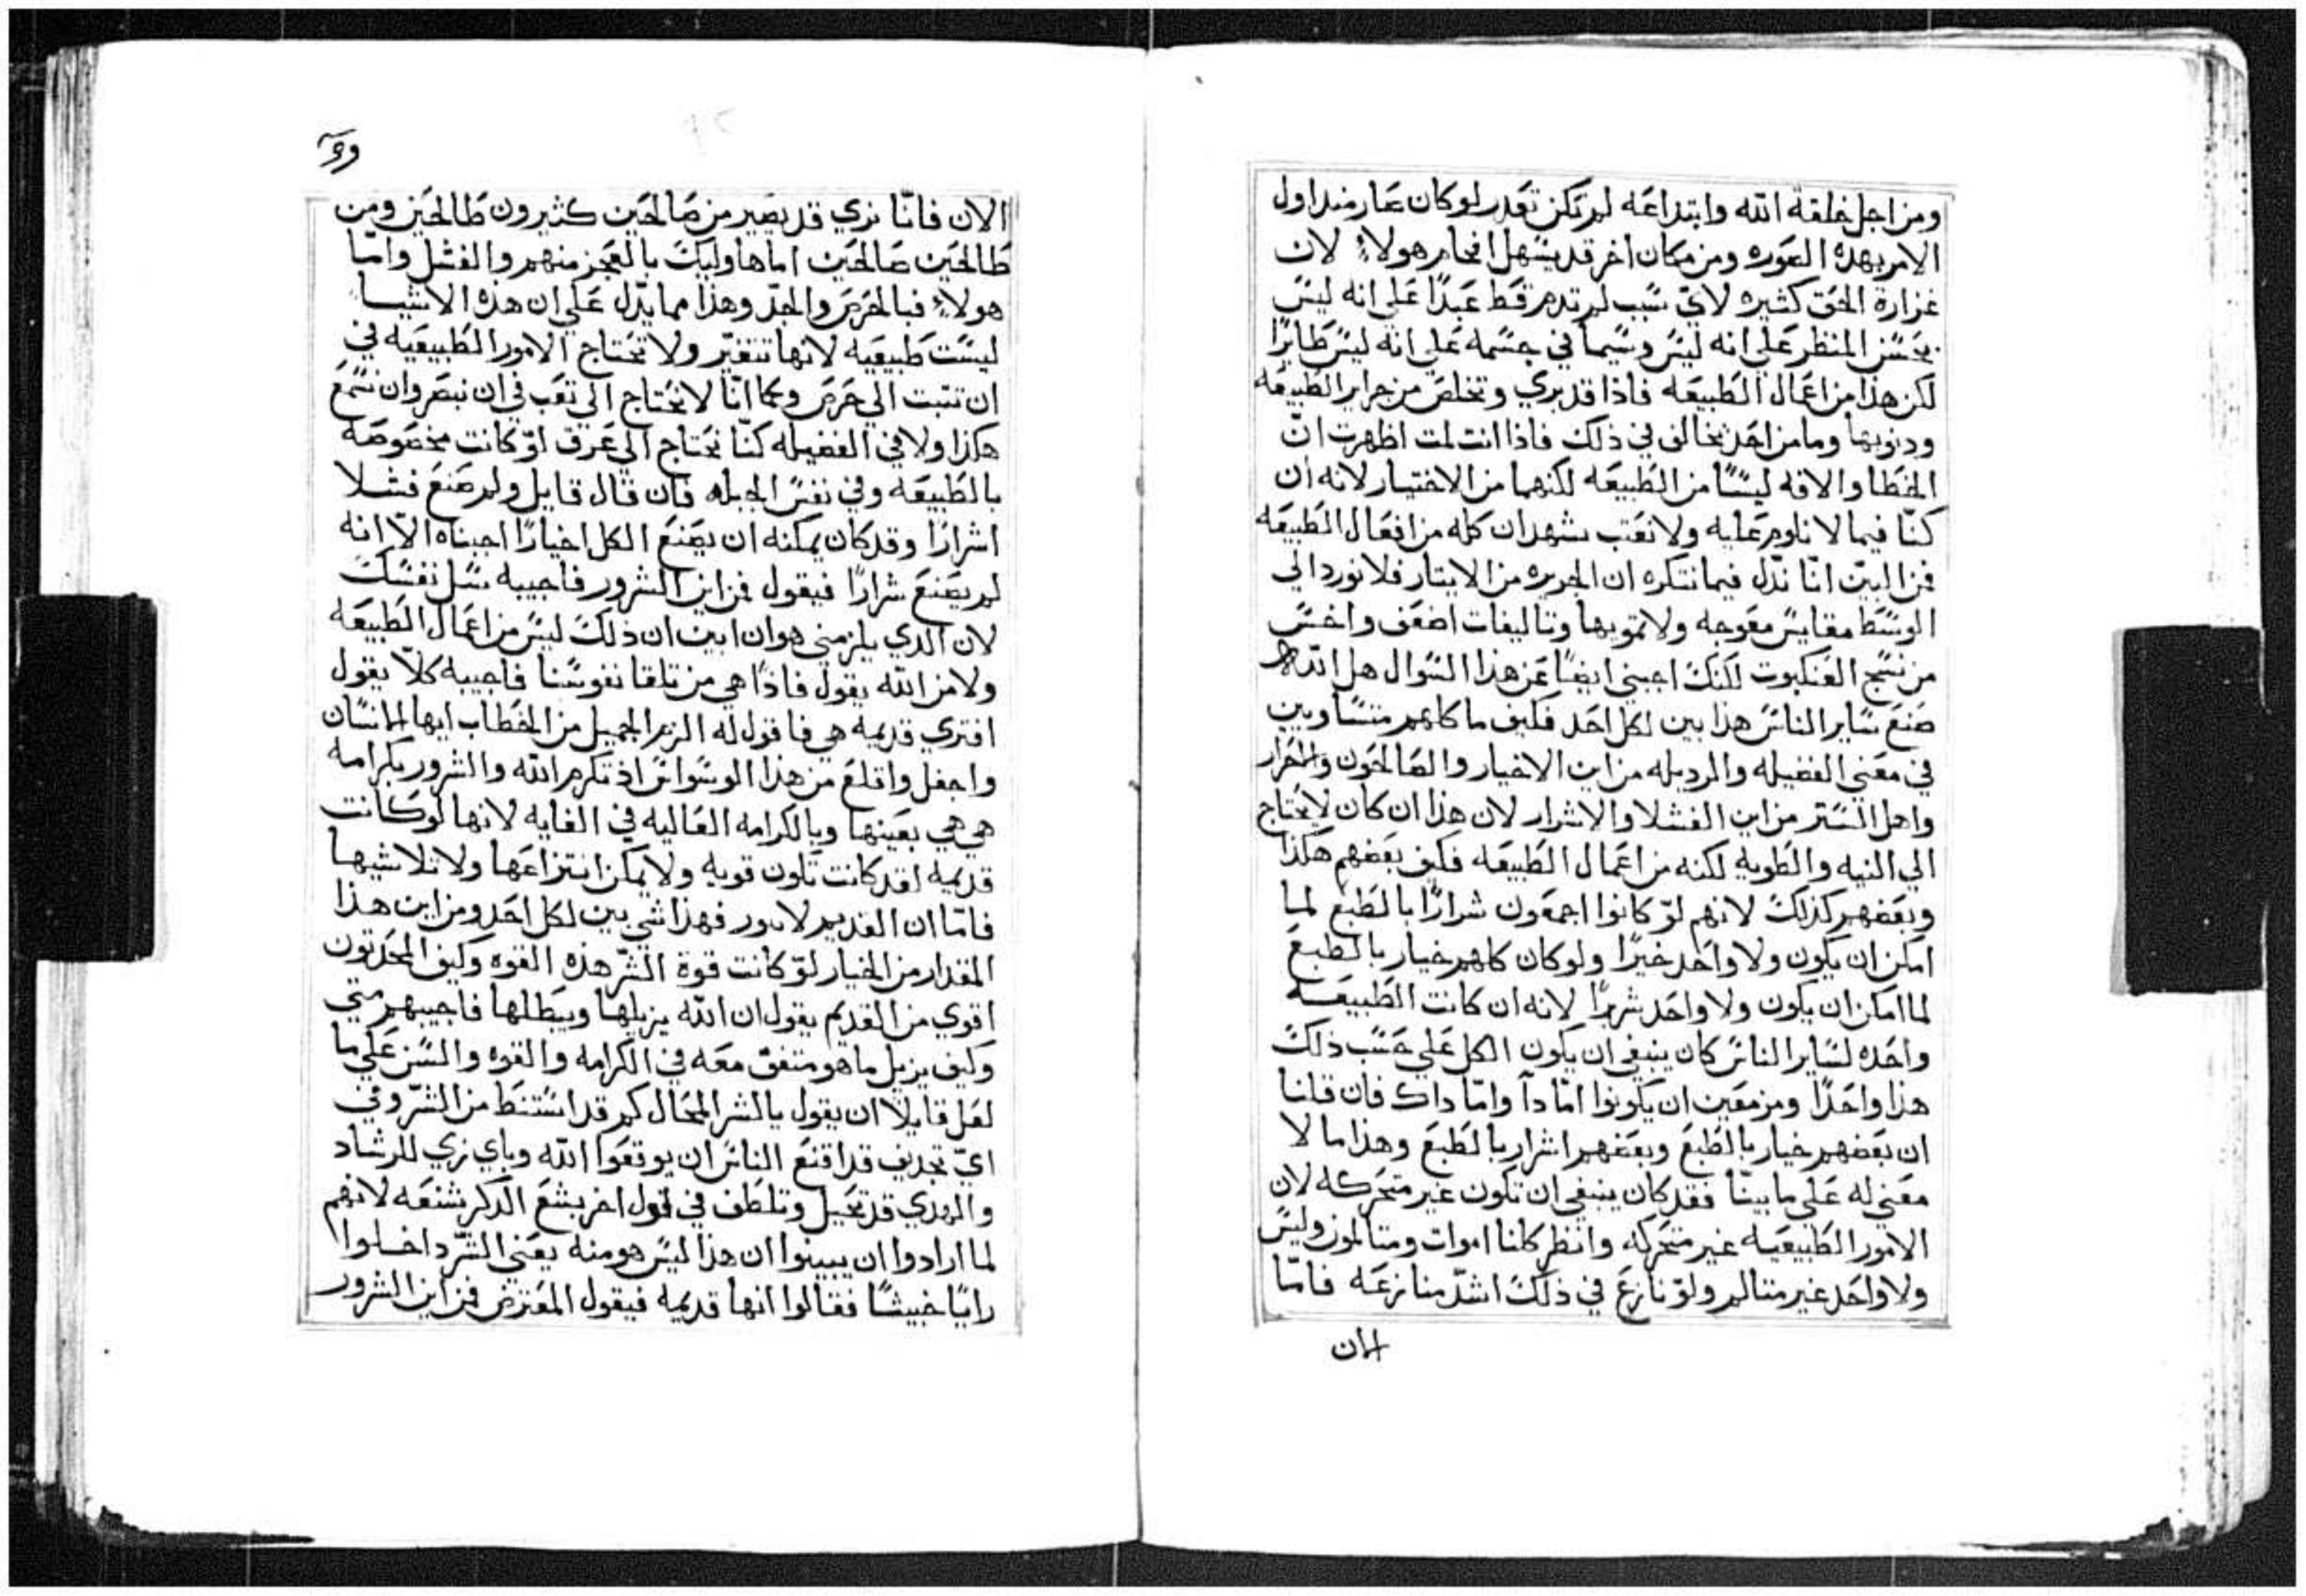 ومن اجل خلقة الله وابتداعه لم تكن تقدر لو كان عار منذ اول
الامر بهده الصوره ومن مكان اخر قد يسهل افحام هولاء لان
غزارة الحق كثيره لاي سبب لم تدم قط عبدًا علي انه ليس
بحسن المنظر علي انه ليس وسيما في جسمه علي انه ليس طايرًا
لكن هذا من اعمال الطبيعه فاذا قد بري وتخلص من جراير الطبيعه
ودنوبها وما من احد يخالف في ذلك فاذا انت لمت اظهرت انّ
الخطا والافه ليسًا من الطبيعه لكنهما من الاختيار لانه ان
كنّا فيما لا نلوم عليه ولا نعتب نشهد ان كله من افعال الطبيعه
فمن البيّن انّا ندّل فيما ننكره ان الجريره من الايتار فلا نورد الي
الوسط مقايس معوجه ولا تمويها وتاليفات اضعف واخس
من نسج العنكبوت لكنك اجبني ايضًا عن هذا السوال هل الله
صنع ساير الناس هذا بين لكل احد فكيف ما كلهم متساويين
في معني الفضيله والرديله من اين الاخيار والصالحون والاحرار
واهل الستر من اين الفشلا والاشرار لان هذا ان كان لا يحتاج
الي النيه والطويه لكنه من اعمال الطبيعه فكيف بعضهم هكذا
وبعضهم كذلك لانهم لوّ كانوا اجمعون شرارًا بالطبع لما
امكن ان يكون ولا واحد خيرًا ولو كان كلهم خيار بالطبع
لما امكن ان يكون ولا واحد شريرًا لانه ان كانت الطبيعه
واحده لساير الناس كان ينبغي ان يكون الكل علي حسب ذلك
هذا واحدًا ومزمعين ان يكونوا امّا دا وامّا داك فان قلنا
ان بعضهم خيار بالطبع وبعضهم اشرار بالطبع وهذا ما لا
معني له علي ما بينّا فقد كان ينبغي ان تكون غير متحركه لان
الامور الطبيعيه غير متحركه وانظر كلنا اموات ومتالمون وليس
ولا واحد غير متالم ولوّ نازع في ذلك اشدّ منازعه فامّا
الان
الان فانّا نري قد يصير من صالحين كثيرون طالحين ومن
طالحين صالحين اما هاوليك بالعجز منهم والفشل وامّا
هولاء فبالحرص والجدّ وهذا مما يدّل علي ان هذه الاشيا
ليست طبيعيه لانها تتغيّر ولا تحتاج الامور الطبيعيه في
ان تتبت الي حرص وكما انّا لا نحتاج الي تعب في ان نبصر وان نسمع
هكذا ولا في الفضيله كنّا نحتاج الي عرق لوّ كانت مخصوصه
بالطبيعه وفي نفس الجبله فان قال قايل ولم صنع فشلا
اشرارًا وقد كان يمكنه ان يصنع الكل اخيارًا اجبناه الاّ انه
لم يصنع شرارًا فيقول فمن اين الشرور فاجيبه سل نفسك
لان الدي يلزمني هو ان ابين ان ذلك ليس من اعمال الطبيعه
ولا من الله يقول فاذًا هي من تلقا نفوسنا فاجيبه كلاّ يقول
افتري قديمه هي فاقول له الزم الجميل من الخطاب ايها الانسان
واجفل واقلع من هذا الوسواس اذ تكرم الله والشرور بكرامه
هي هي بعينها وبالكرامه العاليه في الغايه لانها لو كانت
قديمه لقد كانت تكون قويه ولا يمكن انتزاعها ولا تلاشيها
فامّا ان القديم لا يبور فهذا شي بين لكل احد ومن اين هذا
المقدار من الخيار لوّ كانت قوة الشرّ هذه القوه وكيف المحدتون
اقوي من القديم يقول ان الله يزيلها ويبطلها فاجيبهم متي
وكيف يزيل ما هو متفق معه في الكرامه والقوه والسن علي ما
لعل قايلاً ان يقول يالشر المحال كم قد استنبط من الشرّ وفي
ايّ تجديف قد اقنع الناس ان يوقعوا الله وباي زي للرشاد
والهدي قد تحيل وتلطف في قول اخر بشع الدكر شنعه لانهم
لما ارادوا ان يبينوا ان هذا ليس هو منه يعني الشرّ داخلوا
رايًا خبيثًا فقالوا انها قديمه فيقول المعترض فمن اين الشرور